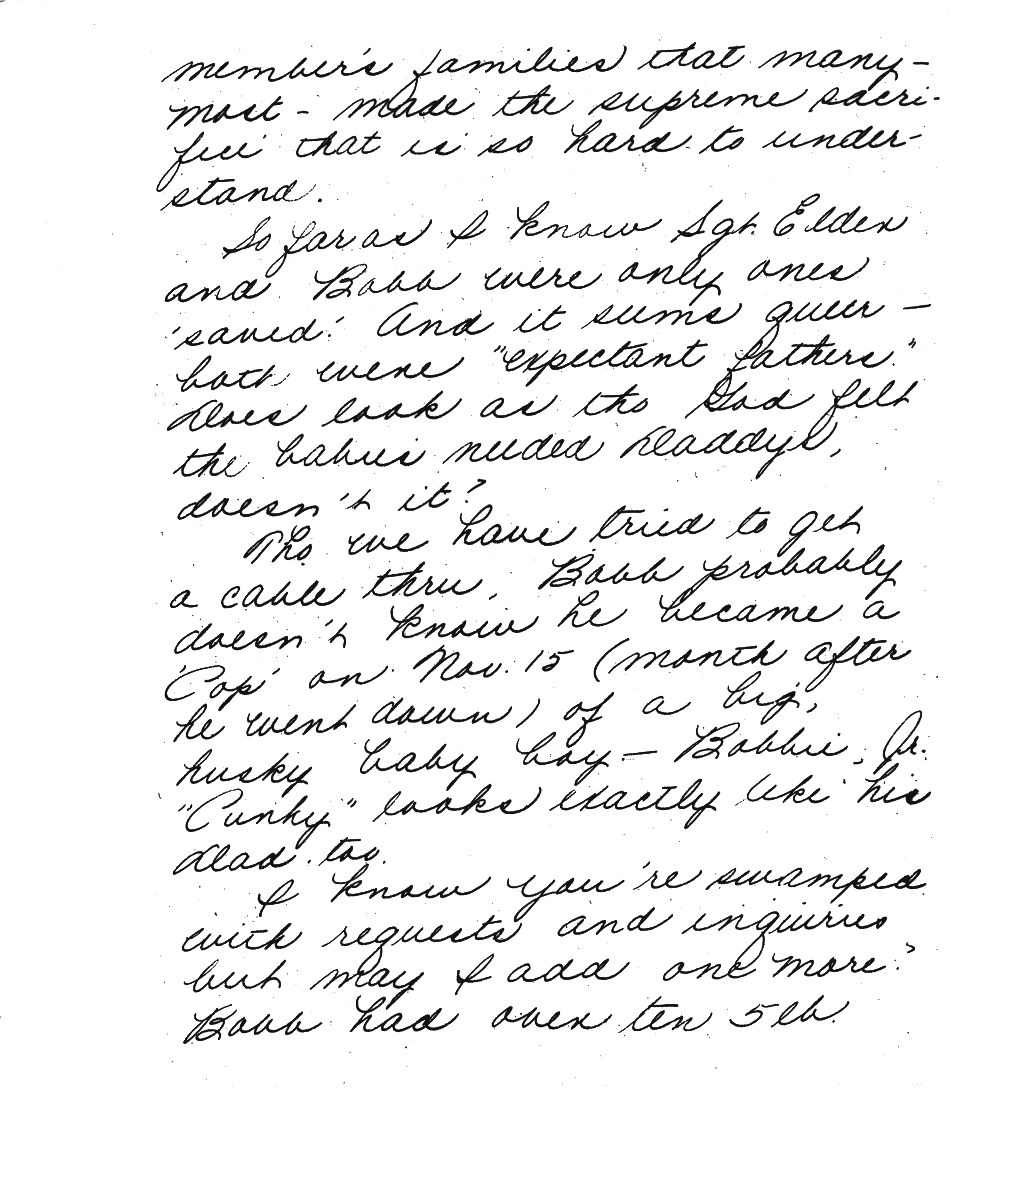 member's families that many -
most - made the supreme sacri-
fice that is so hard to under-
stand.
So far as I know Sgt. Elder
and Bobb were only ones
'saved'. And it seems queer —
both were "expectant fathers."
Does look as tho God felt
the babies needed Daddys,
doesn't it?
Tho we have tried to get
a cable thru, Bobb probably
doesn't know he became a
'Pop' on Nov. 15 (month after
he went down) of a big,
husky baby boy — Bobbie, Jr.
"Punky" looks exactly like his
dad too.
I know you're swamped
with requests and inquiries
but may I add one more?
Bobb had over ten 5 lb.